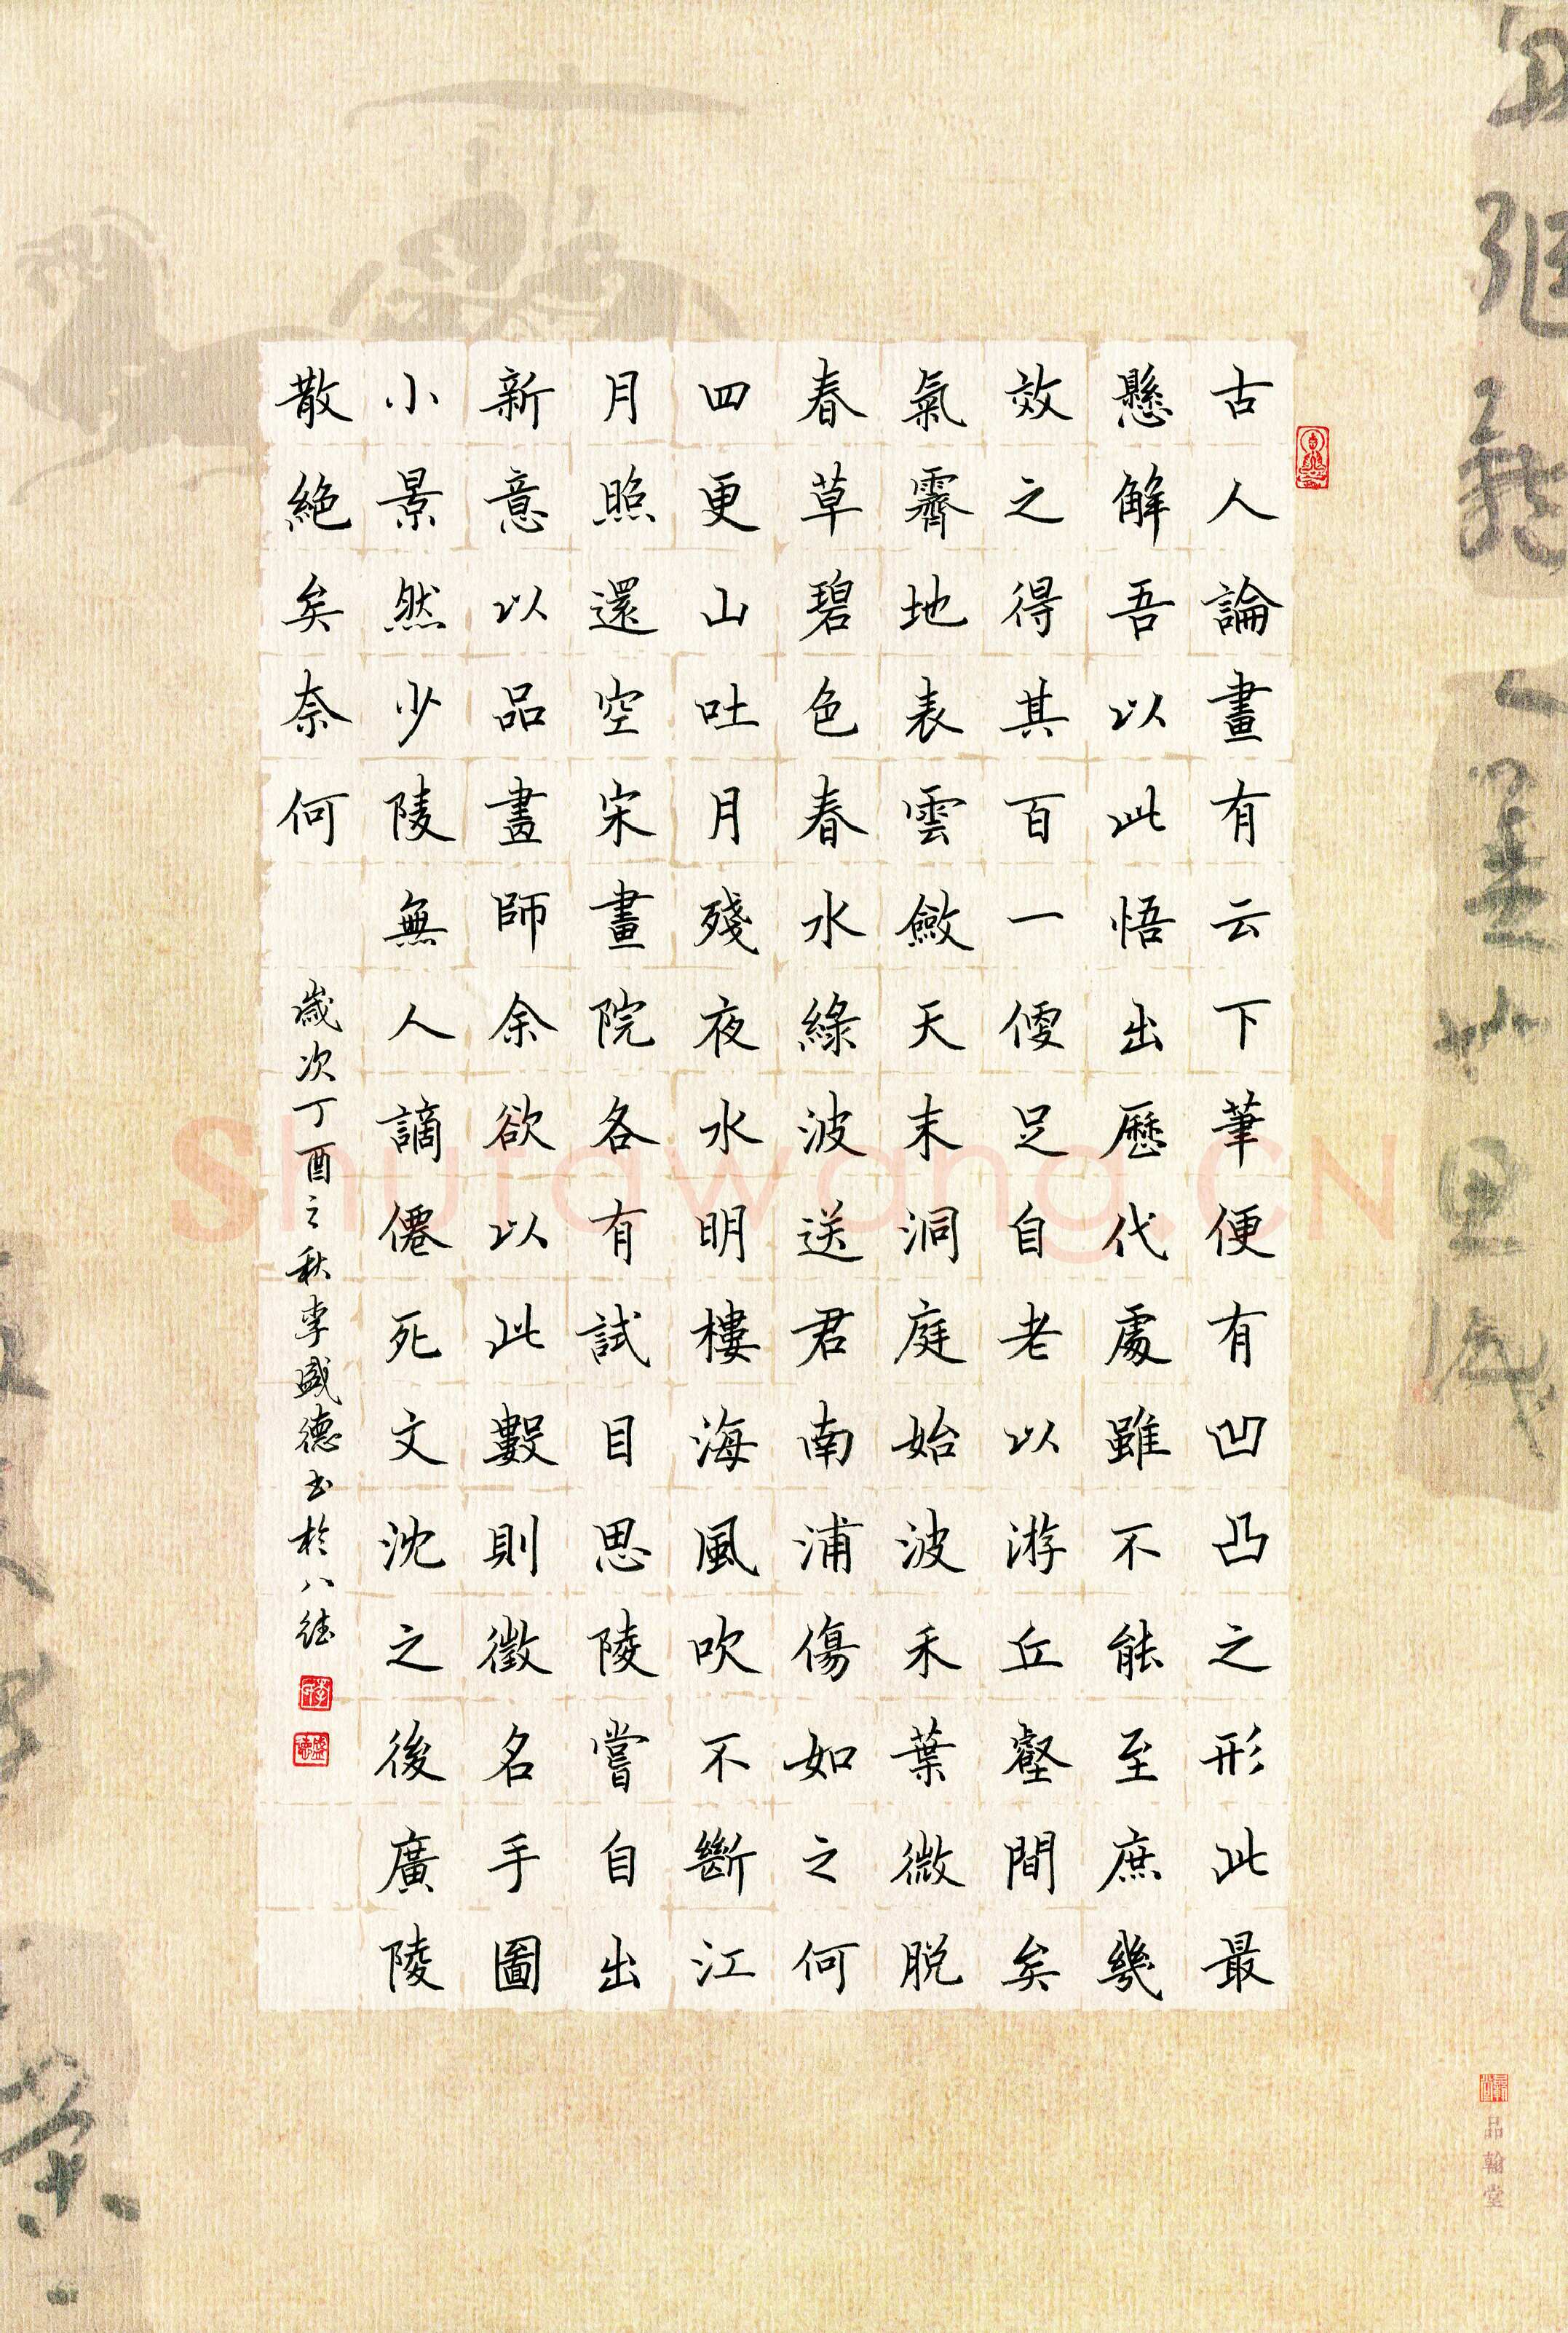 古人論畫有云下筆便有凹凸之形此最
懸解吾以此悟出歷代處雖不能至庶幾
效之得其百一便足自老以游丘壑間矣
氣霽地表雲斂天末洞庭始波禾葉微脱
春草碧色春水綠波送君南浦傷如之何
四更山吐月殘夜水明樓海風吹不斷江
月照還空宋畫院各有試目思陵嘗自出
新意以品畫師余欲以此數則徵名手圖
小景然少陵無人謫僊死文沈之後廣陵
散絕矣奈何
歲次丁酉之秋李盛德书於八

品翰堂
shufawang.CN